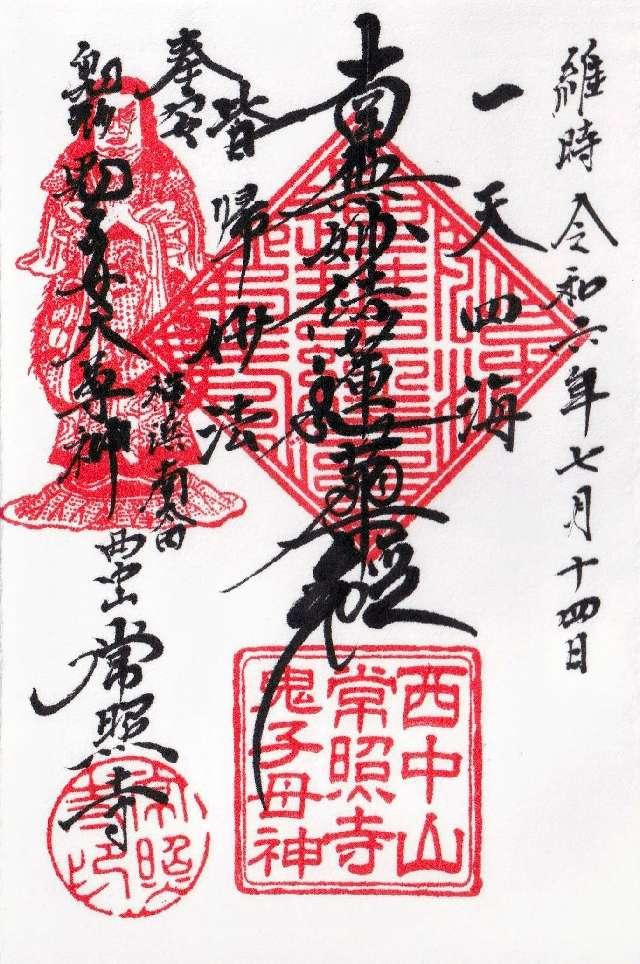 維時 令和六年七月十四日
一天四海
南無妙法蓮華経
皆帰妙法
奉安
鬼形鬼子母大尊神
横浜南太田
西中山 常照寺
西中山
常照寺
鬼子母神
常照
寺印